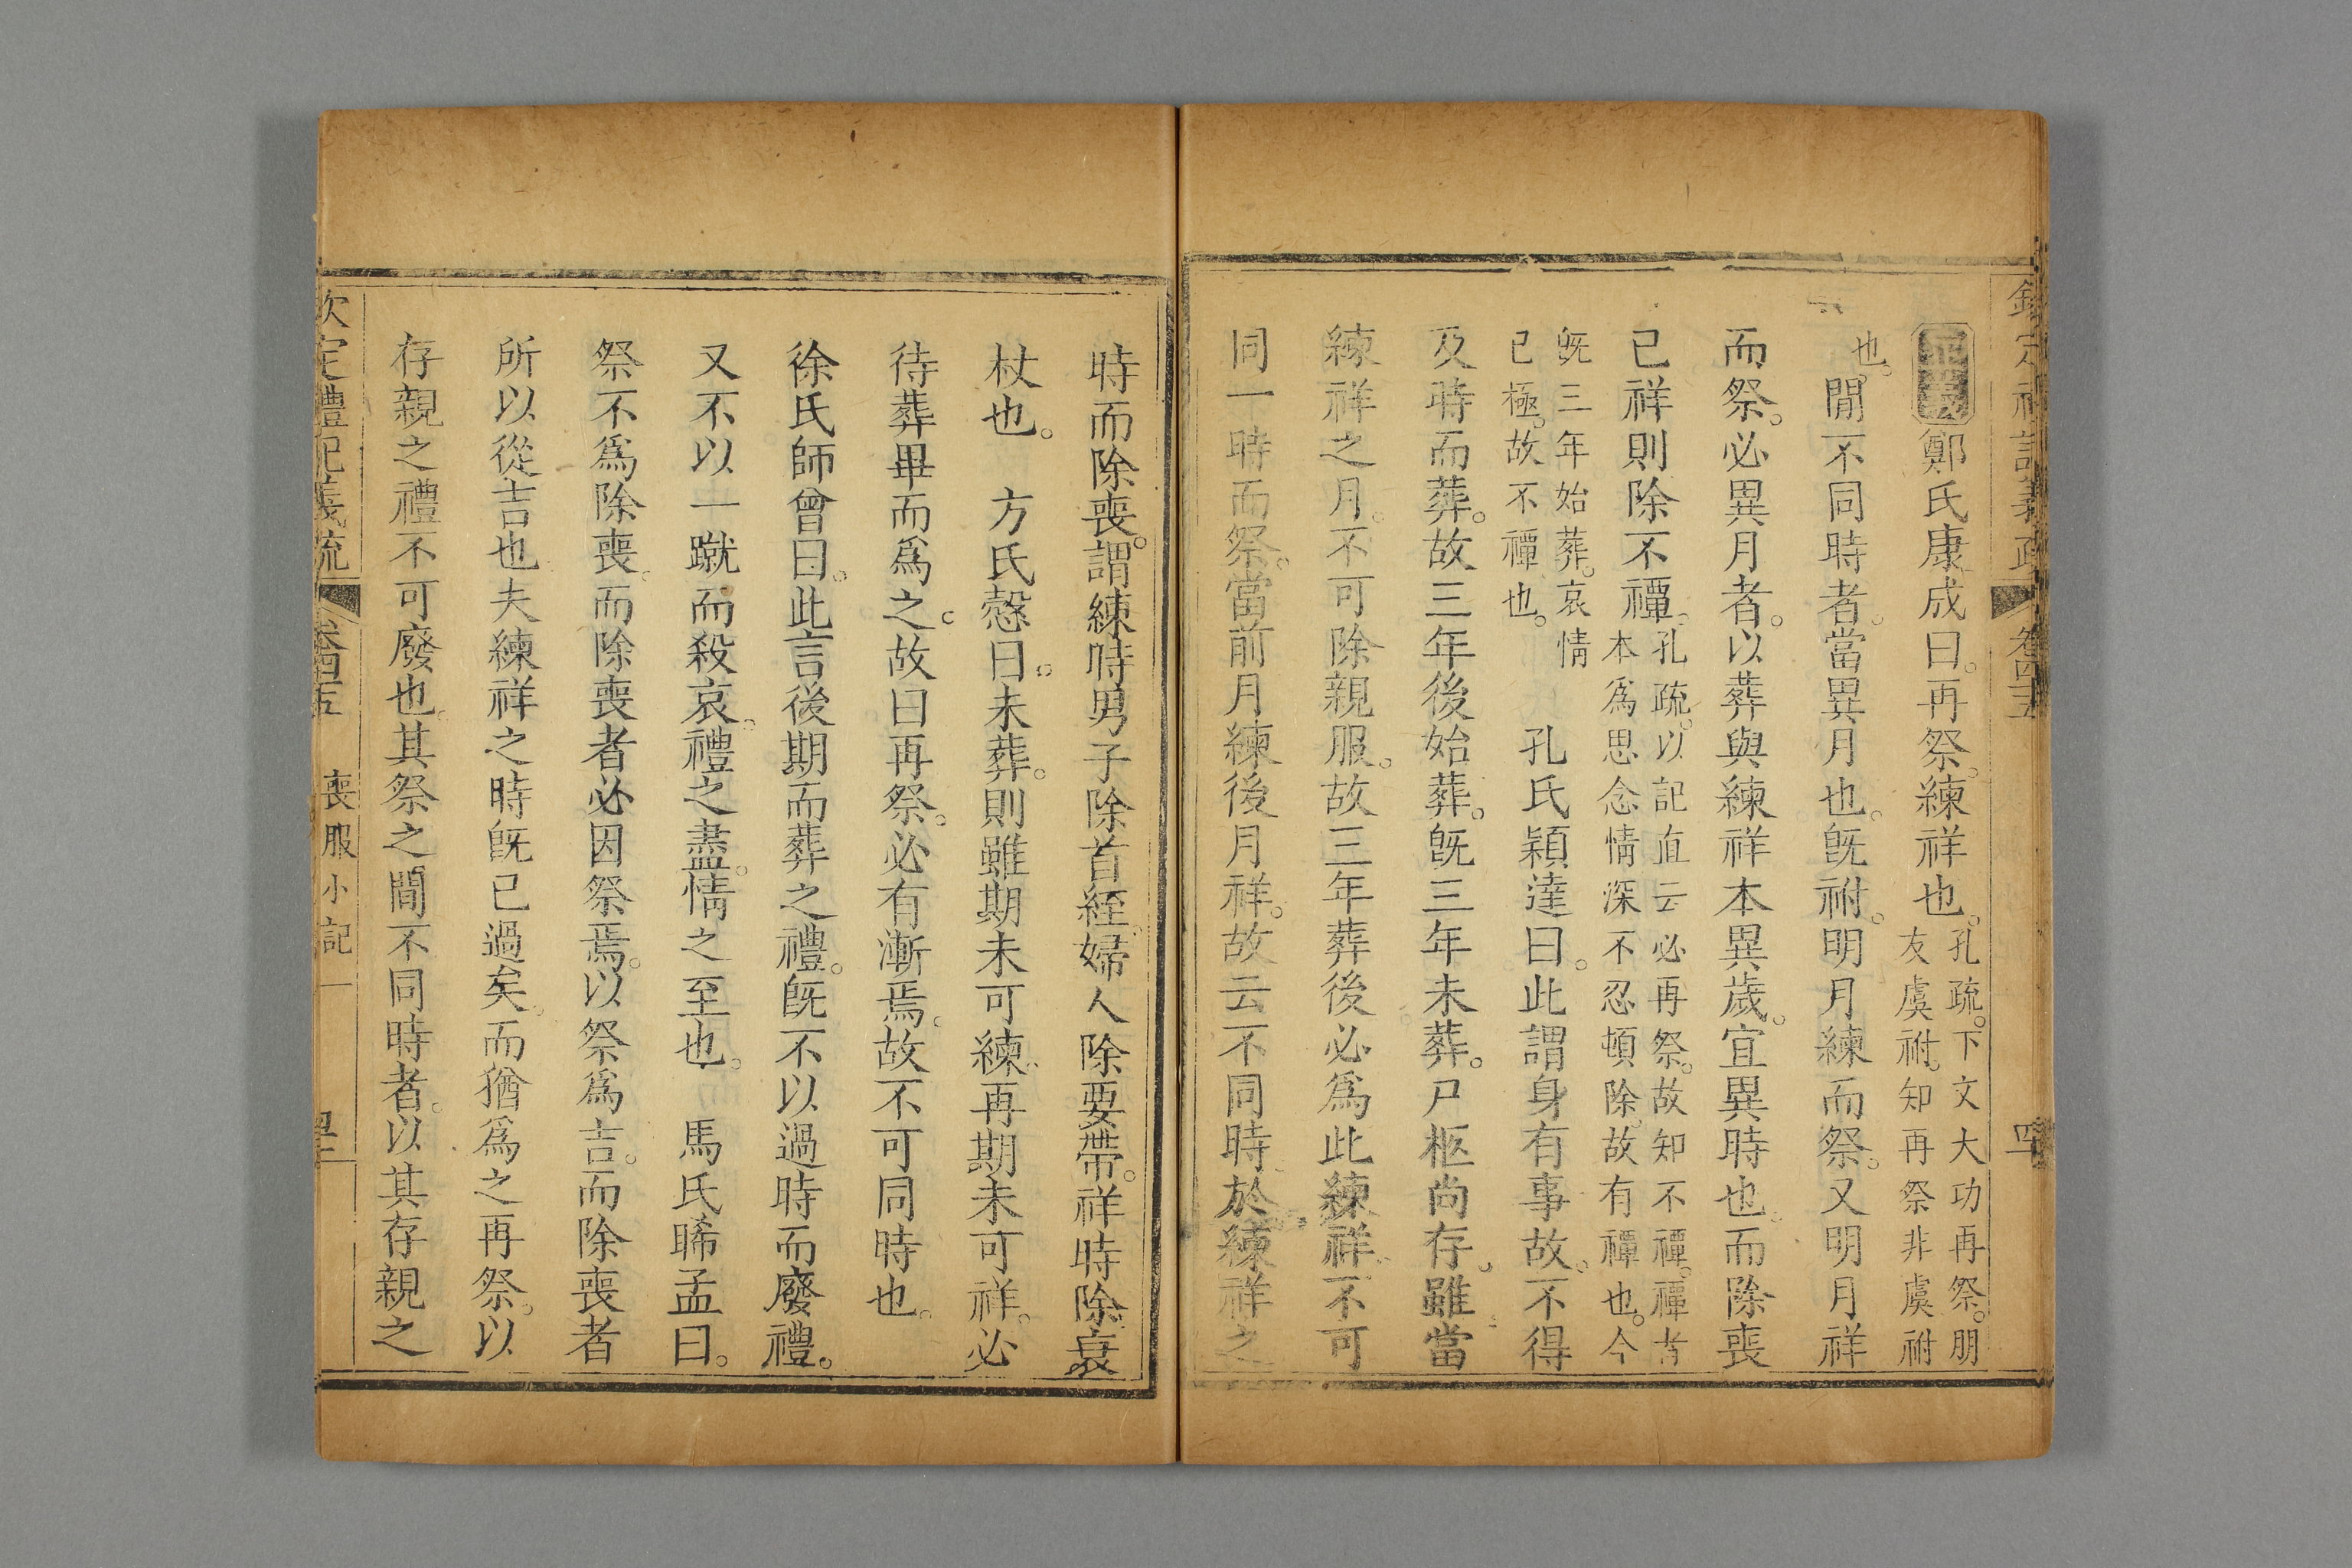 正義鄭氏康成曰。再祭。練祥也。孔疏。下文大功再祭。朋友虞祔。知再祭非虞祔
也。閒不同時者。當異月也。既祔。明月練而祭。又明月祥
而祭。必異月者。以葬與練祥本異歲。宜異時也。而除喪
已祥則除不禫。孔疏。以記直云必再祭。故知不禫。禫者本爲思念情深不忍頓除。故有禫也。今
既三年始葬。哀情已極。故不禫也。孔氏穎達曰。此謂身有事故。不得
及時而葬。故三年後始葬。既三年未葬。尸柩尚存。雖當
練祥之月。不可除親服。故三年葬後必爲此練祥。不可
同一時而祭。當前月練後月祥。故云不同時。於練祥之
時而除喪。謂練時男子除首絰。婦人除要帶。祥時除衰
杖也。方氏慤曰。未葬。則雖期未可練。再期未可祥。必
待葬畢而爲之。故曰再祭。必有漸焉。故不可同時也。
徐氏師曾曰。此言後期而葬之禮。既不以過時而廢禮。
又不以一蹴而殺哀。禮之盡。情之至也。馬氏晞孟曰。
祭不爲除喪。而除喪者必因祭焉。以祭爲吉。而除喪者
所以從吉也。夫練祥之時既已過矣。而猶爲之再祭。以
存親之禮不可廢也。其祭之閒不同時者。以其存親之
欽定禮記義疏 卷四十五 喪服小記一